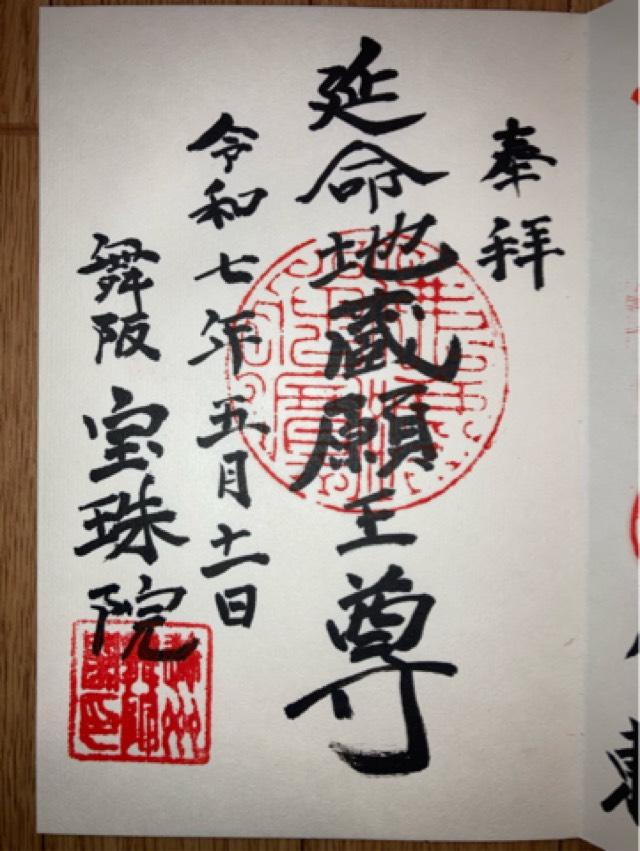 奉拝
延命地蔵願王尊
令和七年五月十一日
舞阪 宝珠院